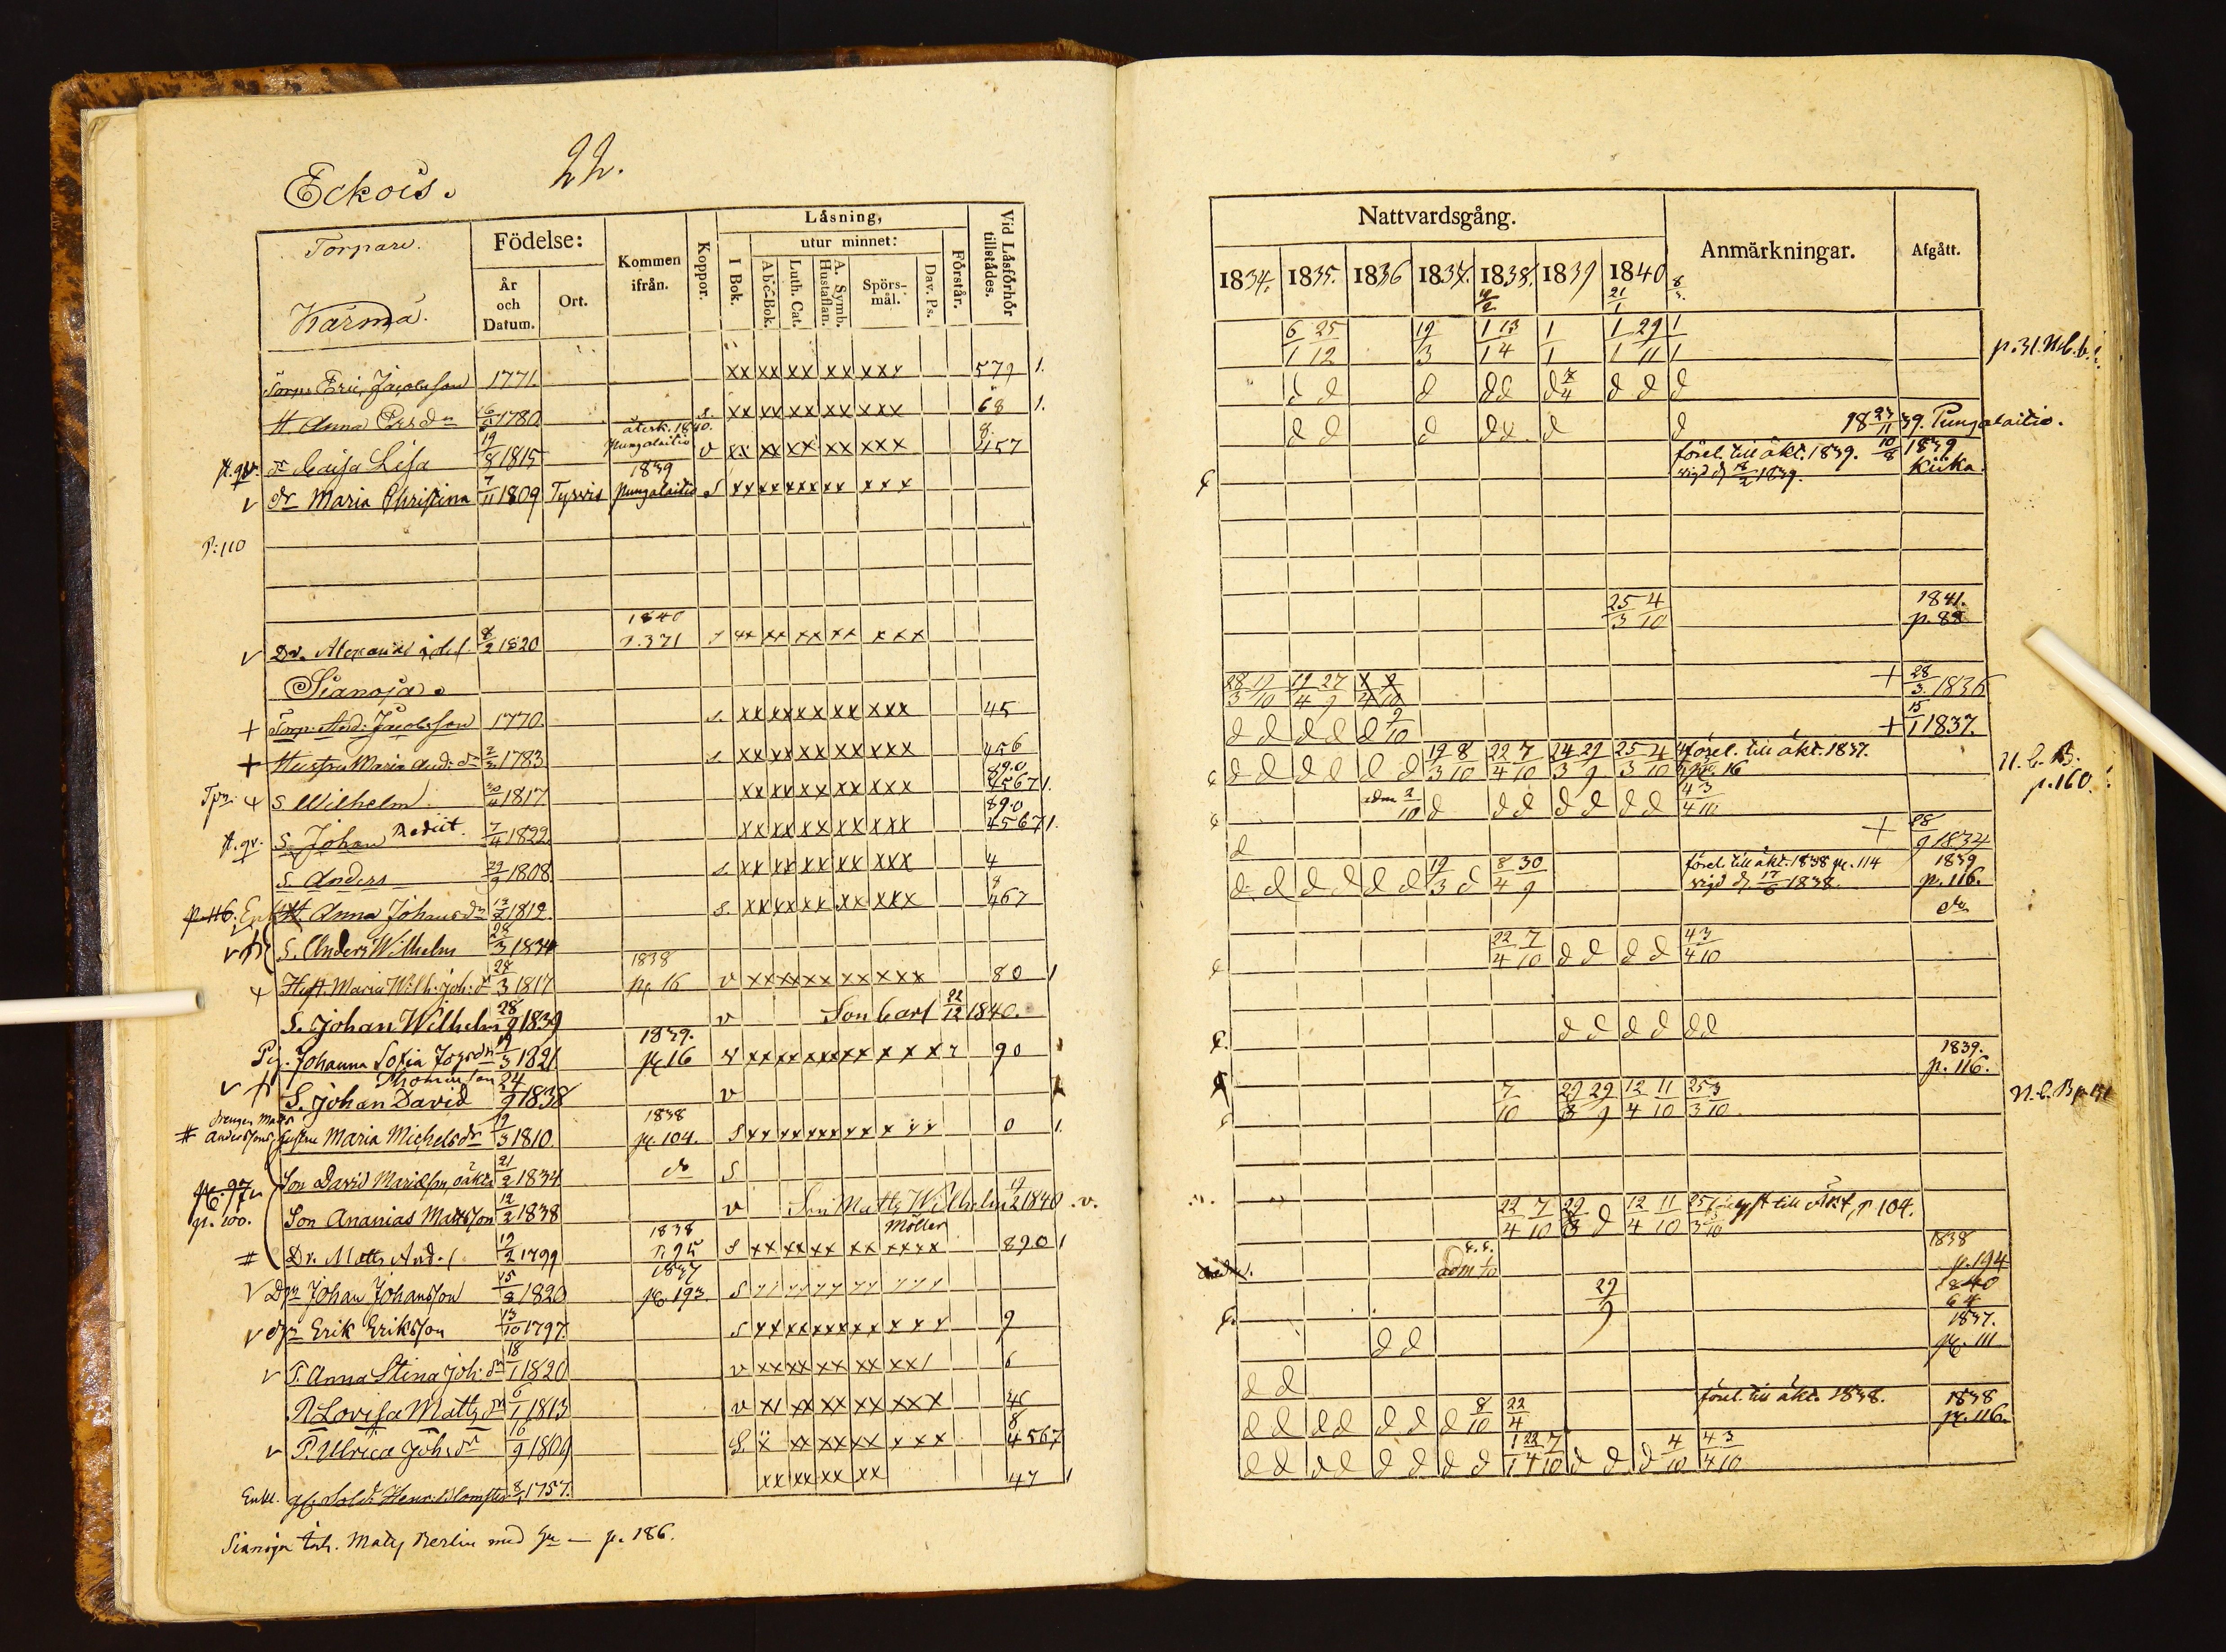 Eckois.
22.
Torpare.
Karma.
Födelse:
År och Datum.
Ort.
Kommen ifrån.
Koppor.
Läsning,
I Bok.
utur minnet:
Abc-Bok.
Luth. Cat.
A. Symb. Hustaflan.
Spörsmål.
Dav. Ps.
Förstår.
Vid Läsförhör tillstädes.
Torp. Eric Jacobsson 1771. xx xx xx xx xxx 579 1.
H Anna Ersdr 16/5 1780 s. xx xx xx xx xxx 68 1.
dr Caisa Lisa 19/8 1815 återk. 1840. Pungalaitio v xx xx xx xx xxx 8. 457
v dr Maria Christina 7/11 1809 Tyrvis 1839 Pungalaitio s xx xx xx xx xxx
P: 110
v Dr. 8/2 1820 1840 P. 371 s xx xx xx xx xxx
Sianoja.
+ Torp. And: Jacobsson 1770. s. xx xx xx xx xxx 45
+ Hustru Maria And: dr 2/3 1783 s. xx xx xx xx xxx 456
S Wilhelm 30/4 1817 xx xx xx xx xxx 89.0 4567 1.
S. Johan Rediit. 7/4 1822 xx xx xx xx xxx 89.0 4567 1.
S. Anders 29/9 1808. s. xx xx xx xx xxx 4
p. 116. H Anna Johansdr 13/2 1812. s. xx xx xx xx xxx 8 467
S. Anders Wilhelm 28/3 1834
Hust. Maria Wilh. Joh: dr 28/3 1817 1838 p. 16 v xx xx xx xx xxx 80 1
S. Johan Wilhelm 28/9 1839 v Son Carl 22/12 1840.
Pig. Johanna Sofia Jozsdr 19/3 1821 1839. p. 16 v xx xx xx xx xxx 90 1
S. Johan David Thomasson 24/9 1838 v
drengen Matts
Anderssons hustru Maria Michelsdr 19/3 1810. 1838 p. 104. s xx xx xx xx xxx 0 1.
Son David Mariesson, oäkta 21/2 1834 do s
p. 97
p. 100.
Son Ananias Mattsson 12/2 1838 v Son Matts Wilhelm 19/2 1840 v.
Dr. Matts And. s. 19/2 1799 1838 P. 95 s xx xx xx xx Möller xxxx 89.0 1
v Dr Johan Johansson 15/8 1820 1837 p. 193. s
v dr Erik Eriksson 13/10 1797. s xx xx xx xx xxx 9
v P. Anna Stina Joh: dr 18/1 1820 v xx xx xx xx xx/ 6
P Lovisa Matts dr 6/1 1813 v x/ xx xx xx xxx 46
v P. Ulrica Joh: dr 16/9 1809 s. x xx xx xx xxx 8 4567
Enkl. gf. Sold: Henr: Blomster 8/1 1757. xx xx xx xx 47 1
Sianoja torp. Matts Berlin med hu — p. 186.
Nattvardsgång.
Anmärkningar.
Afgått.
1834. 1835. 1836 1837. 1838. 1839 1840
6/1 25/12 19/3 1/1 13/4 1/1 1/1 29/11 1/1
p. 31. N.C.b.
d d d d d d 7/4 d d d
d d d d d d d 18 23/11 39. Pungalaitio.
förel. till äkt. 1839. 10/8 1839
vigd d 18/2 1839. Kiika.
25/3 4/10 1841. p. 88
28/3 17/10 19/4 27/9 + 28/3 1836
d d d d d 9/10 + 15/1 1837.
d d d d d d 19/3 8/10 22/4 7/10 24/3 29/9 25/3 4/10 förel. till äkt. 1837. p. 16
N. C. B. p. 160.
adm 2/10 d d d d d d d 4/4 3/10
d + 28/9 1834
d d d d d d 19/3 d 8/4 30/9 förel. till äkt. 1838 p. 114
vigd d 17/6 1838. 1839 p. 116.
do
22/4 7/10 d d d d 4/4 3/10
d d d d d d
1839. p. 116.
7/10 29/8 29/9 12/4 11/10 25/3 3/10
N. C. B p. 151
22/4 7/10 29/8 d 12/4 11/10 25/3 3/10 till äkt, p 104.
adm 1/10 1838 p. 194
29/9 1840 64
d d 1837. p. 111
d d
d d d d d d d 8/10 22/4 förel. till äkt. 1838. 1838 p. 116.
d d d d d d d d 1/1 22/4 7/10 d d d 4/10 4/4 3/10